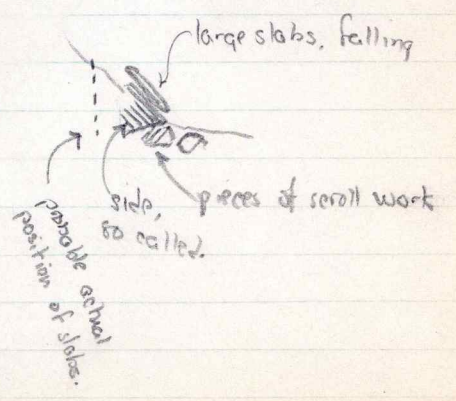 large slabs, falling
pieces of scroll work
side,
so called.
probable actual
position of slabs.